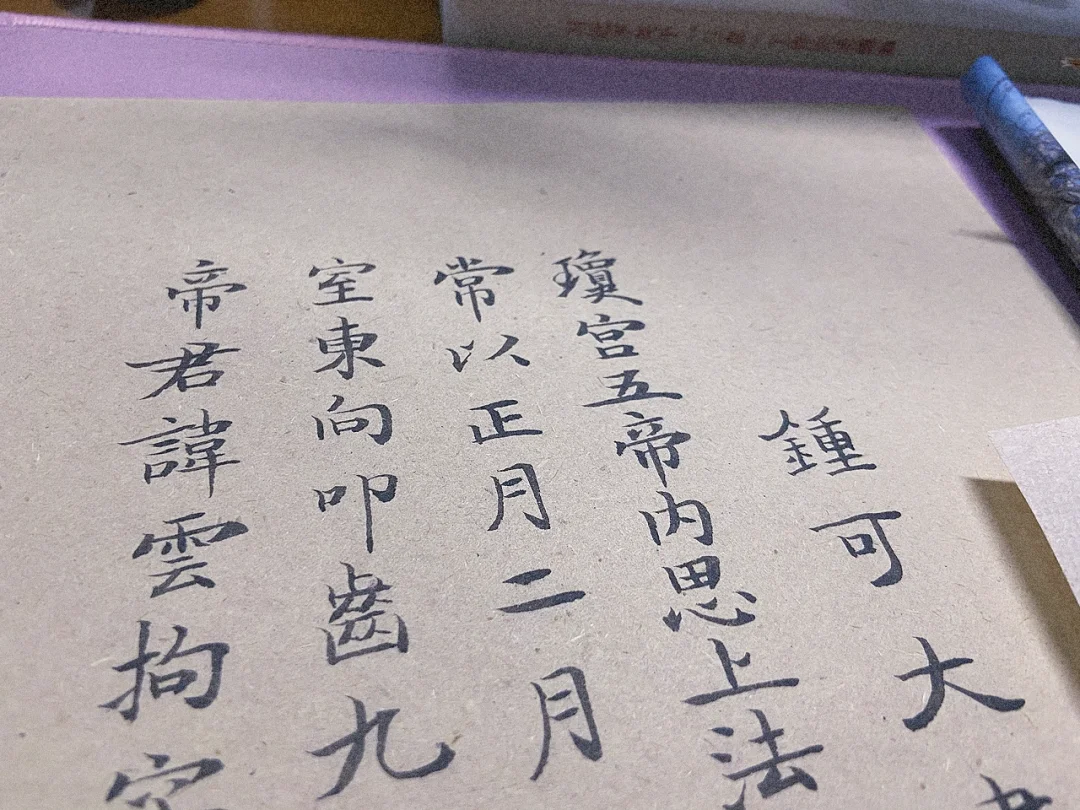 鍾可大
瓊宮五帝內思上法
常以正月二月
室東向叩齒九
帝君諱雲拘